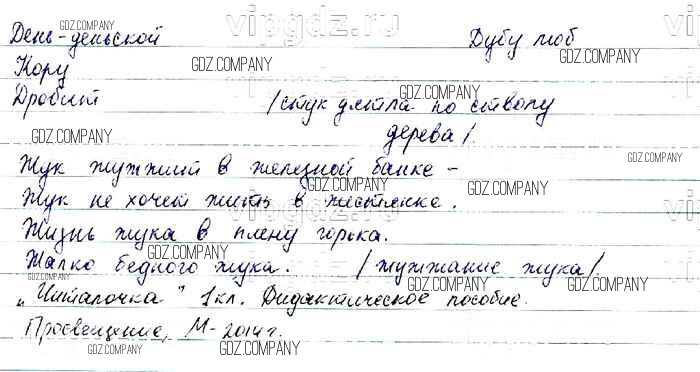 День-деньской Дубу люб
Кору
Дробит /стук дятла по стволу
дерева/
Жук жужжит в железной банке -
Жук не хочет жить в жестянке.
Жизнь жука в плену горька.
Жалко бедного жука. /жужжание жука/.
"Читалочка" 1кл. Дидактическое пособие.
Просвещение, М-2014г.
vipgdz.ru
vipgdz.ru
GDZ.COMPANY
GDZ.COMPANY
GDZ.COMPANY
GDZ.COMPANY
GDZ.COMPANY
GDZ.COMPANY
GDZ.COMPANY
GDZ.COMPANY
GDZ.COMPANY
GDZ.COMPANY
GDZ.COMPANY
GDZ.COMPANY
GDZ.COMPANY
GDZ.COMPANY